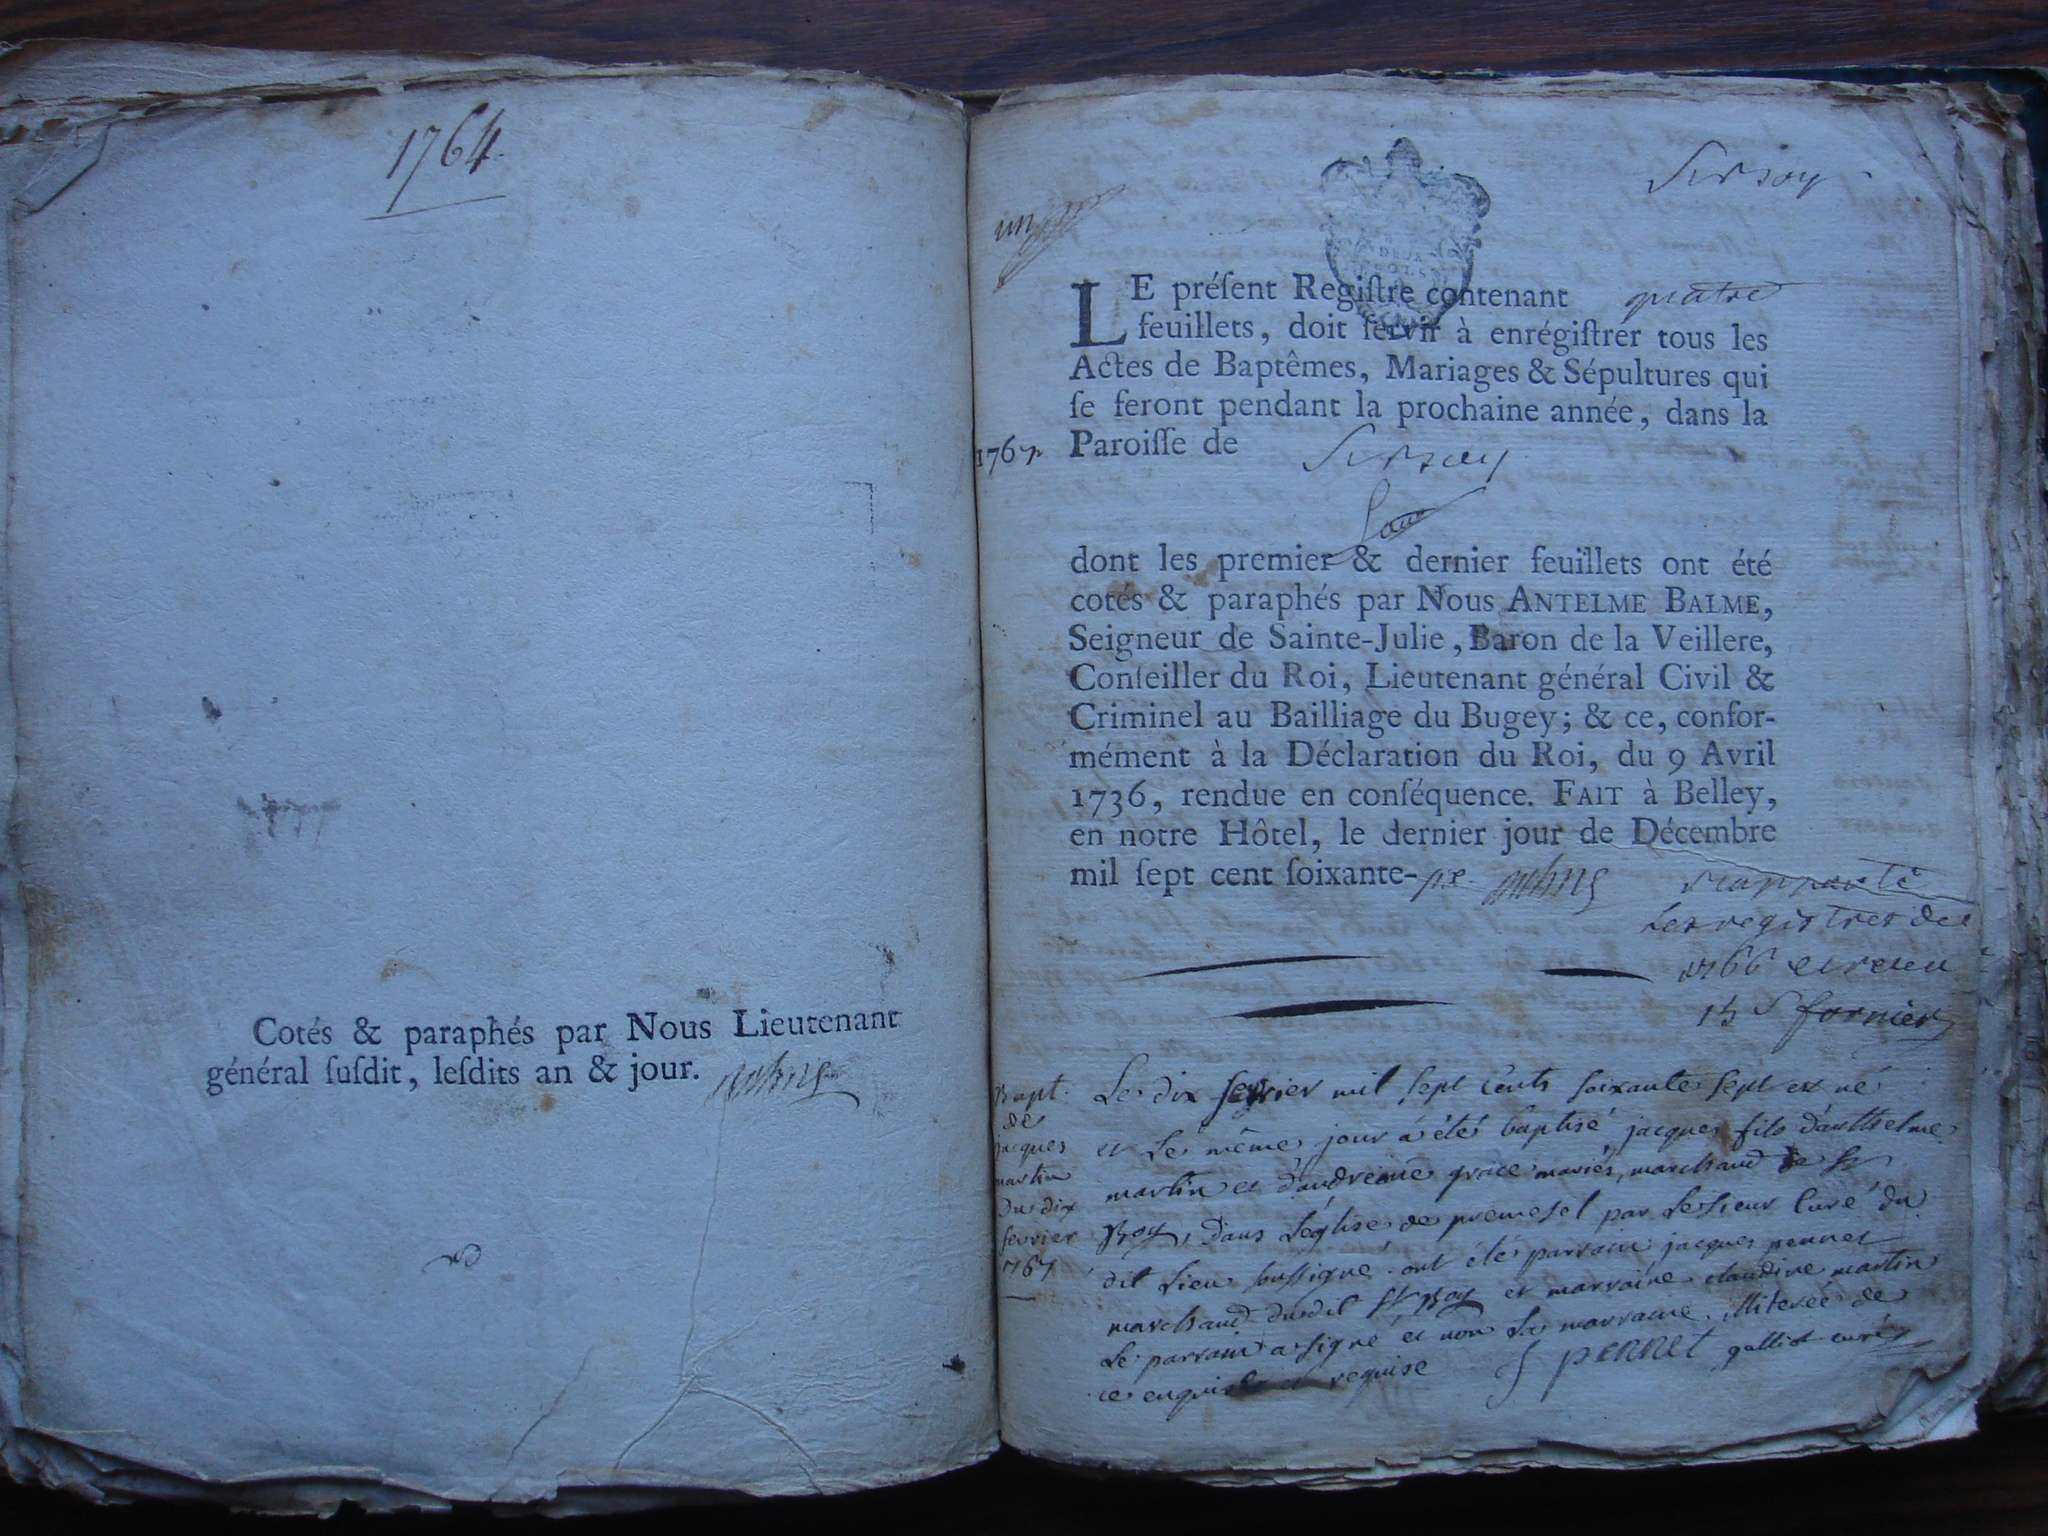 1764
Cotés & paraphés par Nous Lieutenant
général ſuſdit, leſdits an & jour.
un
DEUX
SOLS
LE préſent Regiſtre contenant quatre
feuillets, doit ſervir à enrégiſtrer tous les
Actes de Baptêmes, Mariages & Sépultures qui
ſe feront pendant la prochaine année, dans la
1767 Paroiſſe de
dont les premier & dernier feuillets ont été
cotés & paraphés par Nous ANTELME BALME,
Seigneur de Sainte-Julie, Baron de la Veillere,
Conſeiller du Roi, Lieutenant général Civil &
Criminel au Bailliage du Bugey; & ce, confor-
mément à la Déclaration du Roi, du 9 Avril
1736, rendue en conſéquence. FAIT à Belley,
en notre Hôtel, le dernier jour de Décembre
mil ſept cent ſoixante-
rapporté
Les registres de
1766 et reçu
13 s fornier
Bapt.
de
jacques
martin
du dix
fevrier
1767
Le dix fevrier mil sept cents soixante sept est né
et le même jour a été baptisé jacques fils d'anthelme
martin et d'andreane grace mariés, marchand de St
Boy, dans l'église de premesel par le sieur curé du
dit lieu soussigné. ont été parrain jacques pennet
marchand dudit St Boy et marraine claudine martin
Le parrain a signé et non la marraine illiterée de
ce enquise et requise J pennet galliot curé